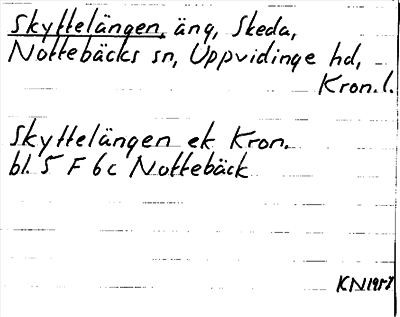 Skyttelängen, äng, Skeda,
Nottebäcks sn, Uppvidinge hd,
Kron. l.
Skyttelängen ek Kron.
bl. 5 F 6c Nottebäck